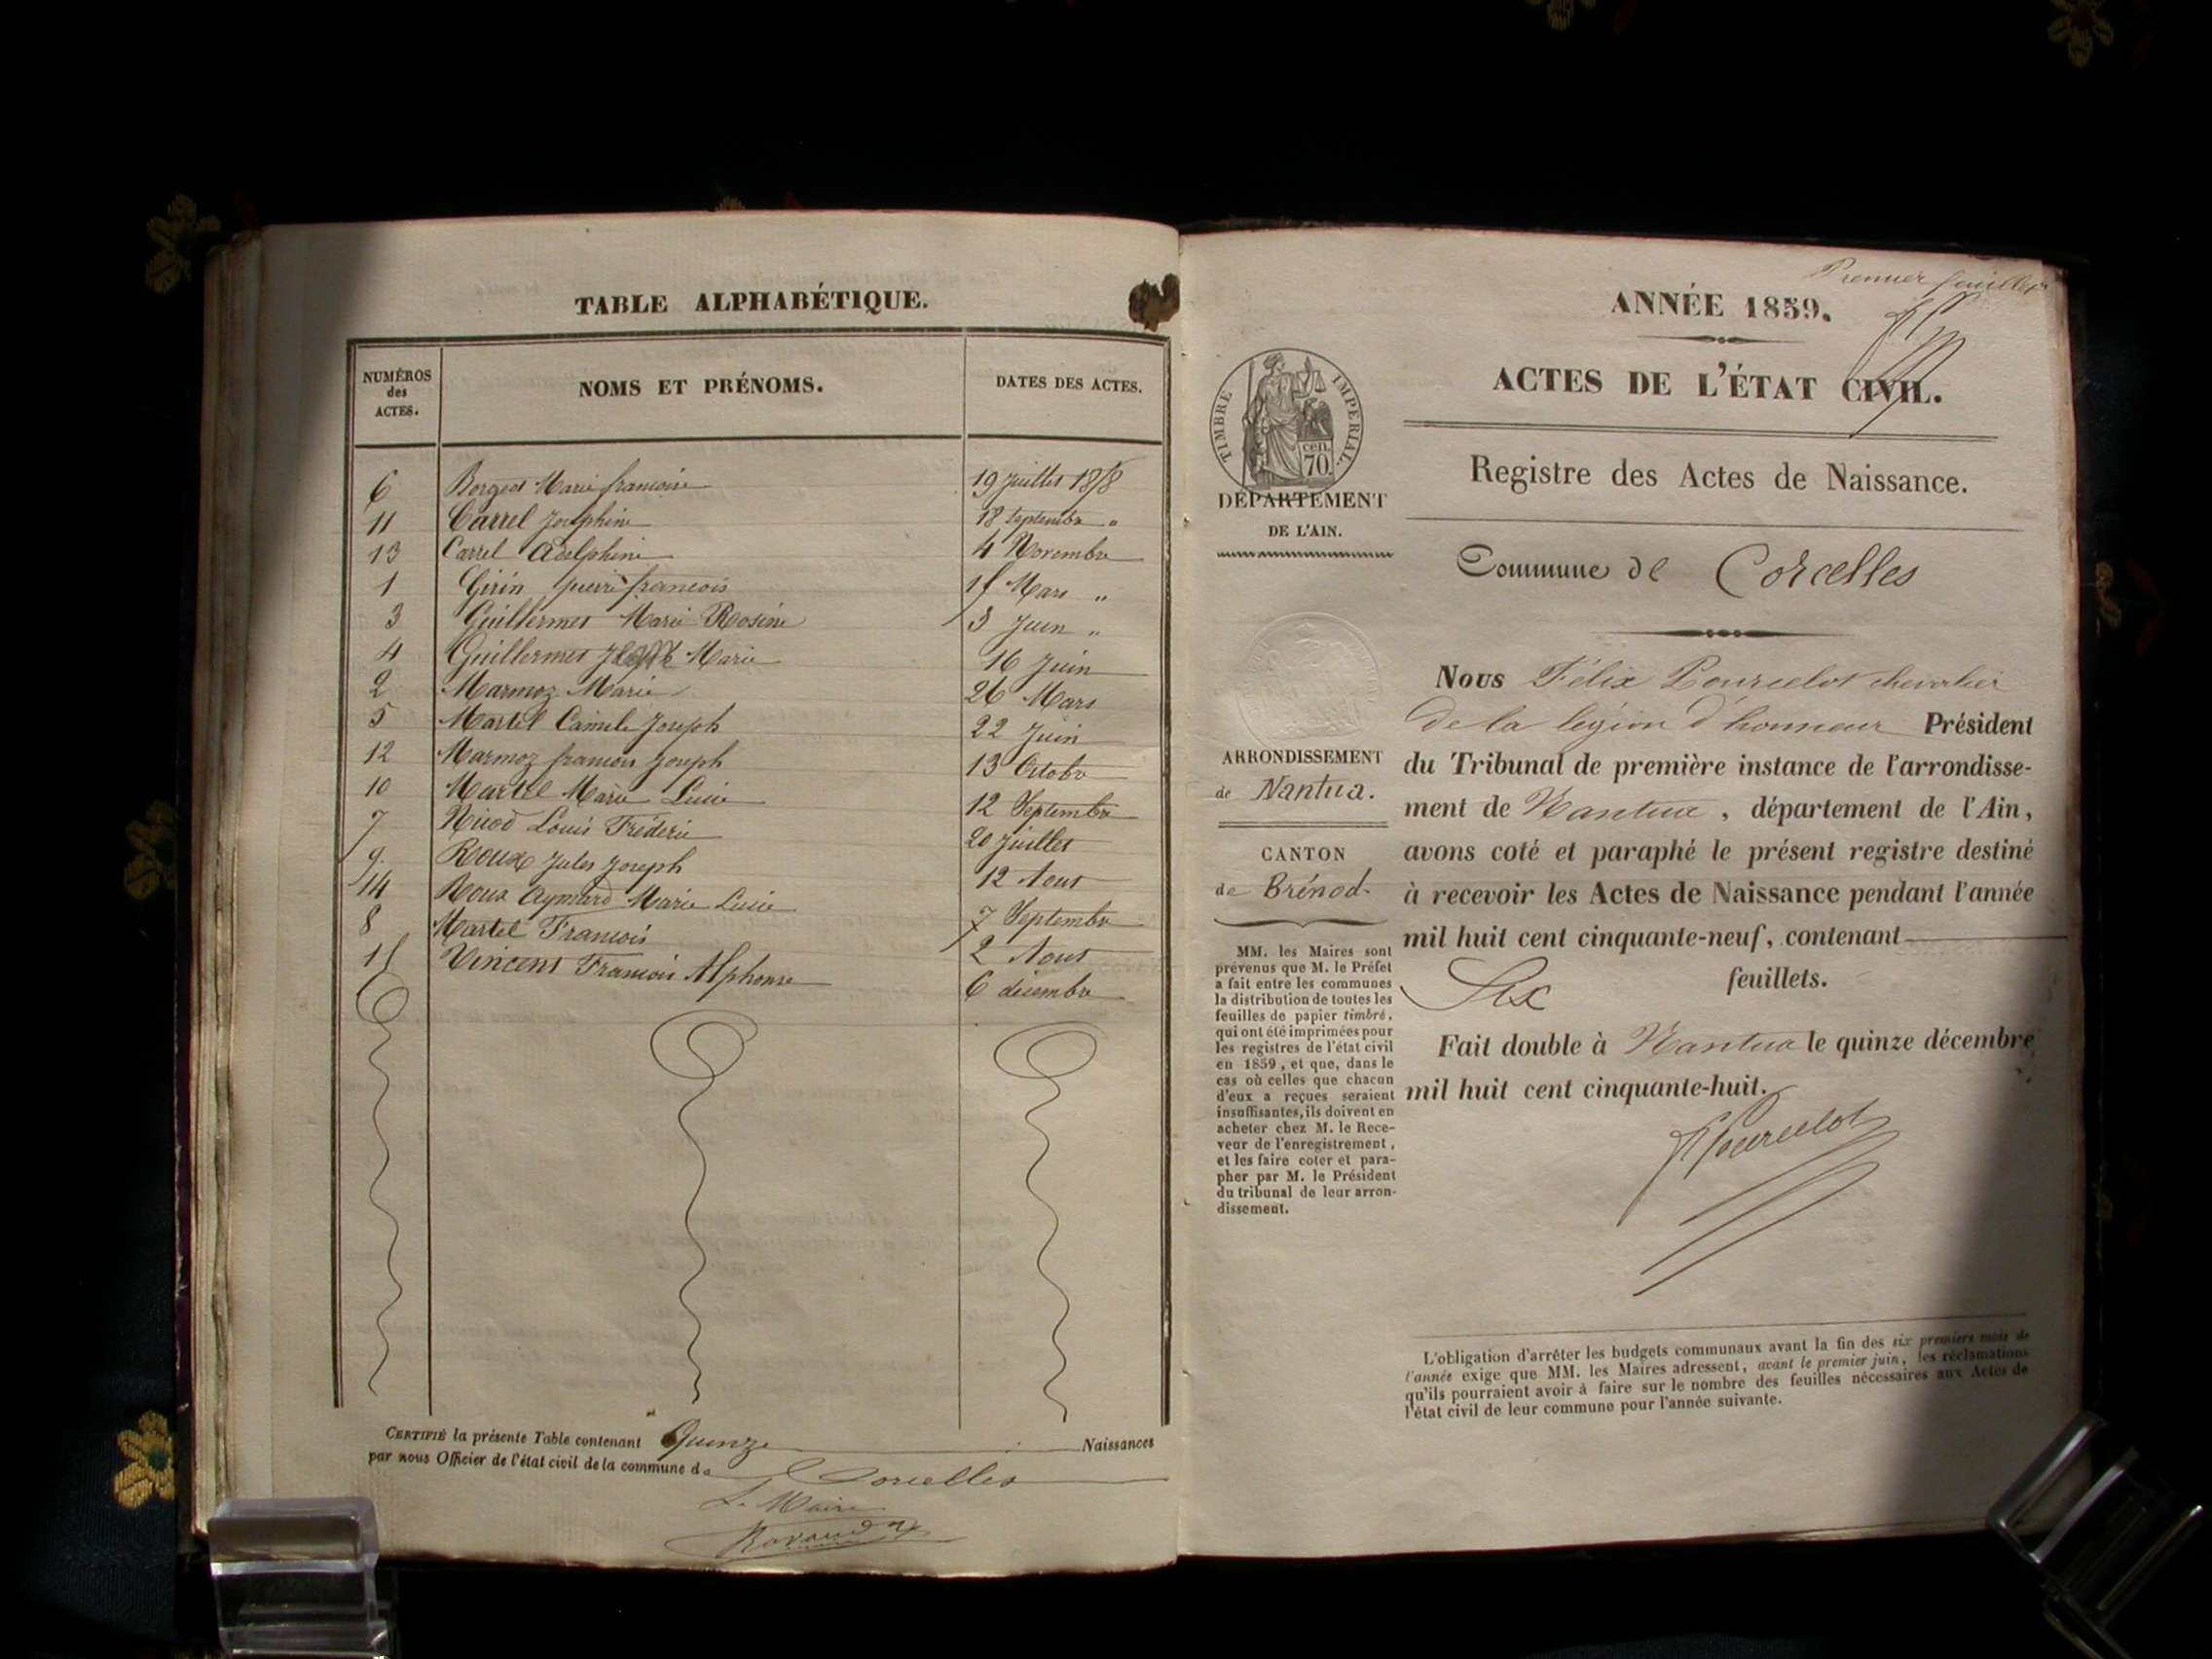 TABLE ALPHABÉTIQUE.
NUMÉROS des ACTES. NOMS ET PRÉNOMS. DATES DES ACTES.
6 Borget Marie françoise 19 Juillet 1858
11 Carrel Joséphine 18 Septembre "
13 Carrel Adelphine 4 Novembre
1 Girin pierre françois 15 Mars "
3 Guillermet Marie Rosine 3 Juin "
4 Guillermet Marie 16 Juin
2 Marmoz Marie 26 Mars
5 Martel Camile Joseph 22 Juin
12 Marmoz francois Joseph 13 Octobre
10 Martel Marie Lucie 12 Septembre
7 Nicod Louis Frédéric 20 Juillet
9. Roux Jules Joseph 12 Aout
14 Roux Aymard Marie Lucie 7 Septembre
8 Martel François 2 Aout
15 Vincent François Alphonse 6 décembre
CERTIFIÉ la présente Table contenant Quinze Naissances
par nous Officier de l'état civil de la commune de Corcelles
Le Maire
Ravaud
Premier feuillet
ANNÉE 1859.
ACTES DE L'ÉTAT CIVIL.
TIMBRE IMPERIAL.
cen.
70.
DÉPARTEMENT
DE L'AIN.
Registre des Actes de Naissance.
Commune de Corcelles
ARRONDISSEMENT
de Nantua.
CANTON
de Brénod.
MM. les Maires sont
prévenus que M. le Préfet
a fait entre les communes
la distribution de toutes les
feuilles de papier timbré,
qui ont été imprimées pour
les registres de l'état civil
en 1859, et que, dans le
cas où celles que chacun
d'eux a reçues seraient
insuffisantes, ils doivent en
acheter chez M. le Rece-
veur de l'enregistrement,
et les faire coter et para-
pher par M. le Président
du tribunal de leur arron-
dissement.
Nous Félix Pourcelot chevalier
de la légion d'honneur Président
du Tribunal de première instance de l'arrondisse-
ment de Nantua, département de l'Ain,
avons coté et paraphé le présent registre destiné
à recevoir les Actes de Naissance pendant l'année
mil huit cent cinquante-neuf, contenant
Six feuillets.
Fait double à Nantua le quinze décembre
mil huit cent cinquante-huit.
F Pourcelot
L'obligation d'arrêter les budgets communaux avant la fin des six premiers mois de
l'année exige que MM. les Maires adressent, avant le premier juin, les réclamations
qu'ils pourraient avoir à faire sur le nombre des feuilles nécessaires aux Actes de
l'état civil de leur commune pour l'année suivante.